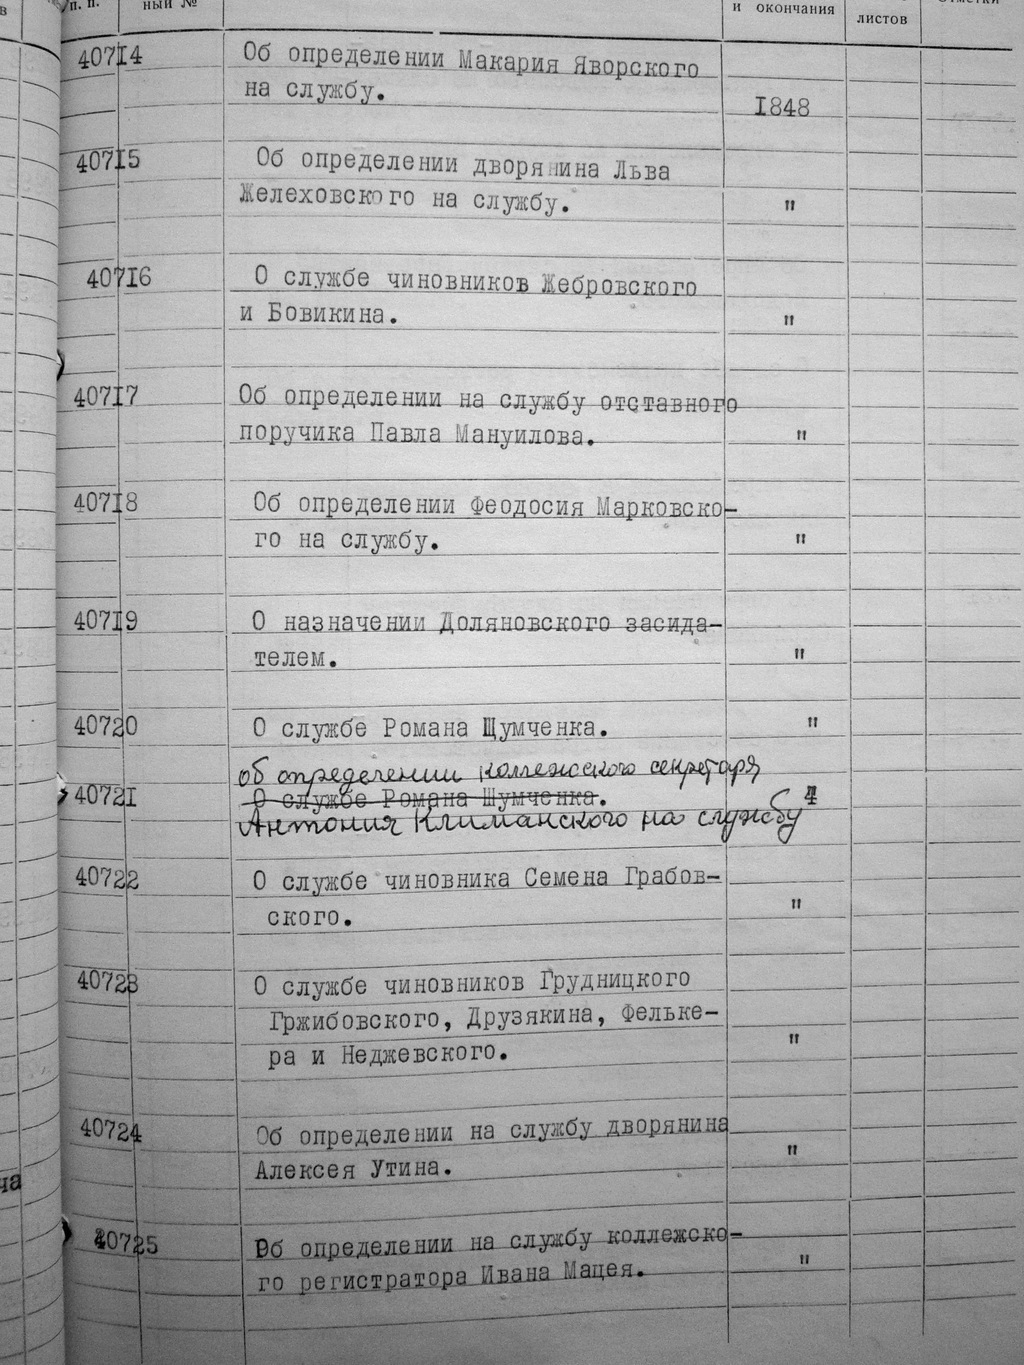 в п. п. ный № и окончания листов
40714 Об определении Макария Яворского
на службу. 1848
40715 Об определении дворянина Льва
Желеховского на службу. "
40716 О службе чиновников Жебровского
и Бовикина. "
40717 Об определении на службу отставного
поручика Павла Мануилова. "
40718 Об определении Феодосия Марковско-
го на службу. "
40719 О назначении Доляновского засида-
телем. "
40720 О службе Романа Щумченка. "
об определении коллежского секретаря
40721 О службе Романа Шумченка.
Антония Климанского на службу
40722 О службе чиновника Семена Грабов-
ского. "
40723 О службе чиновников Грудницкого
Гржибовского, Друзякина, Фельке-
ра и Неджевского. "
40724 Об определении на службу дворянина
Алексея Утина. "
ча
40725 Об определении на службу коллежско-
го регистратора Ивана Мацея. "